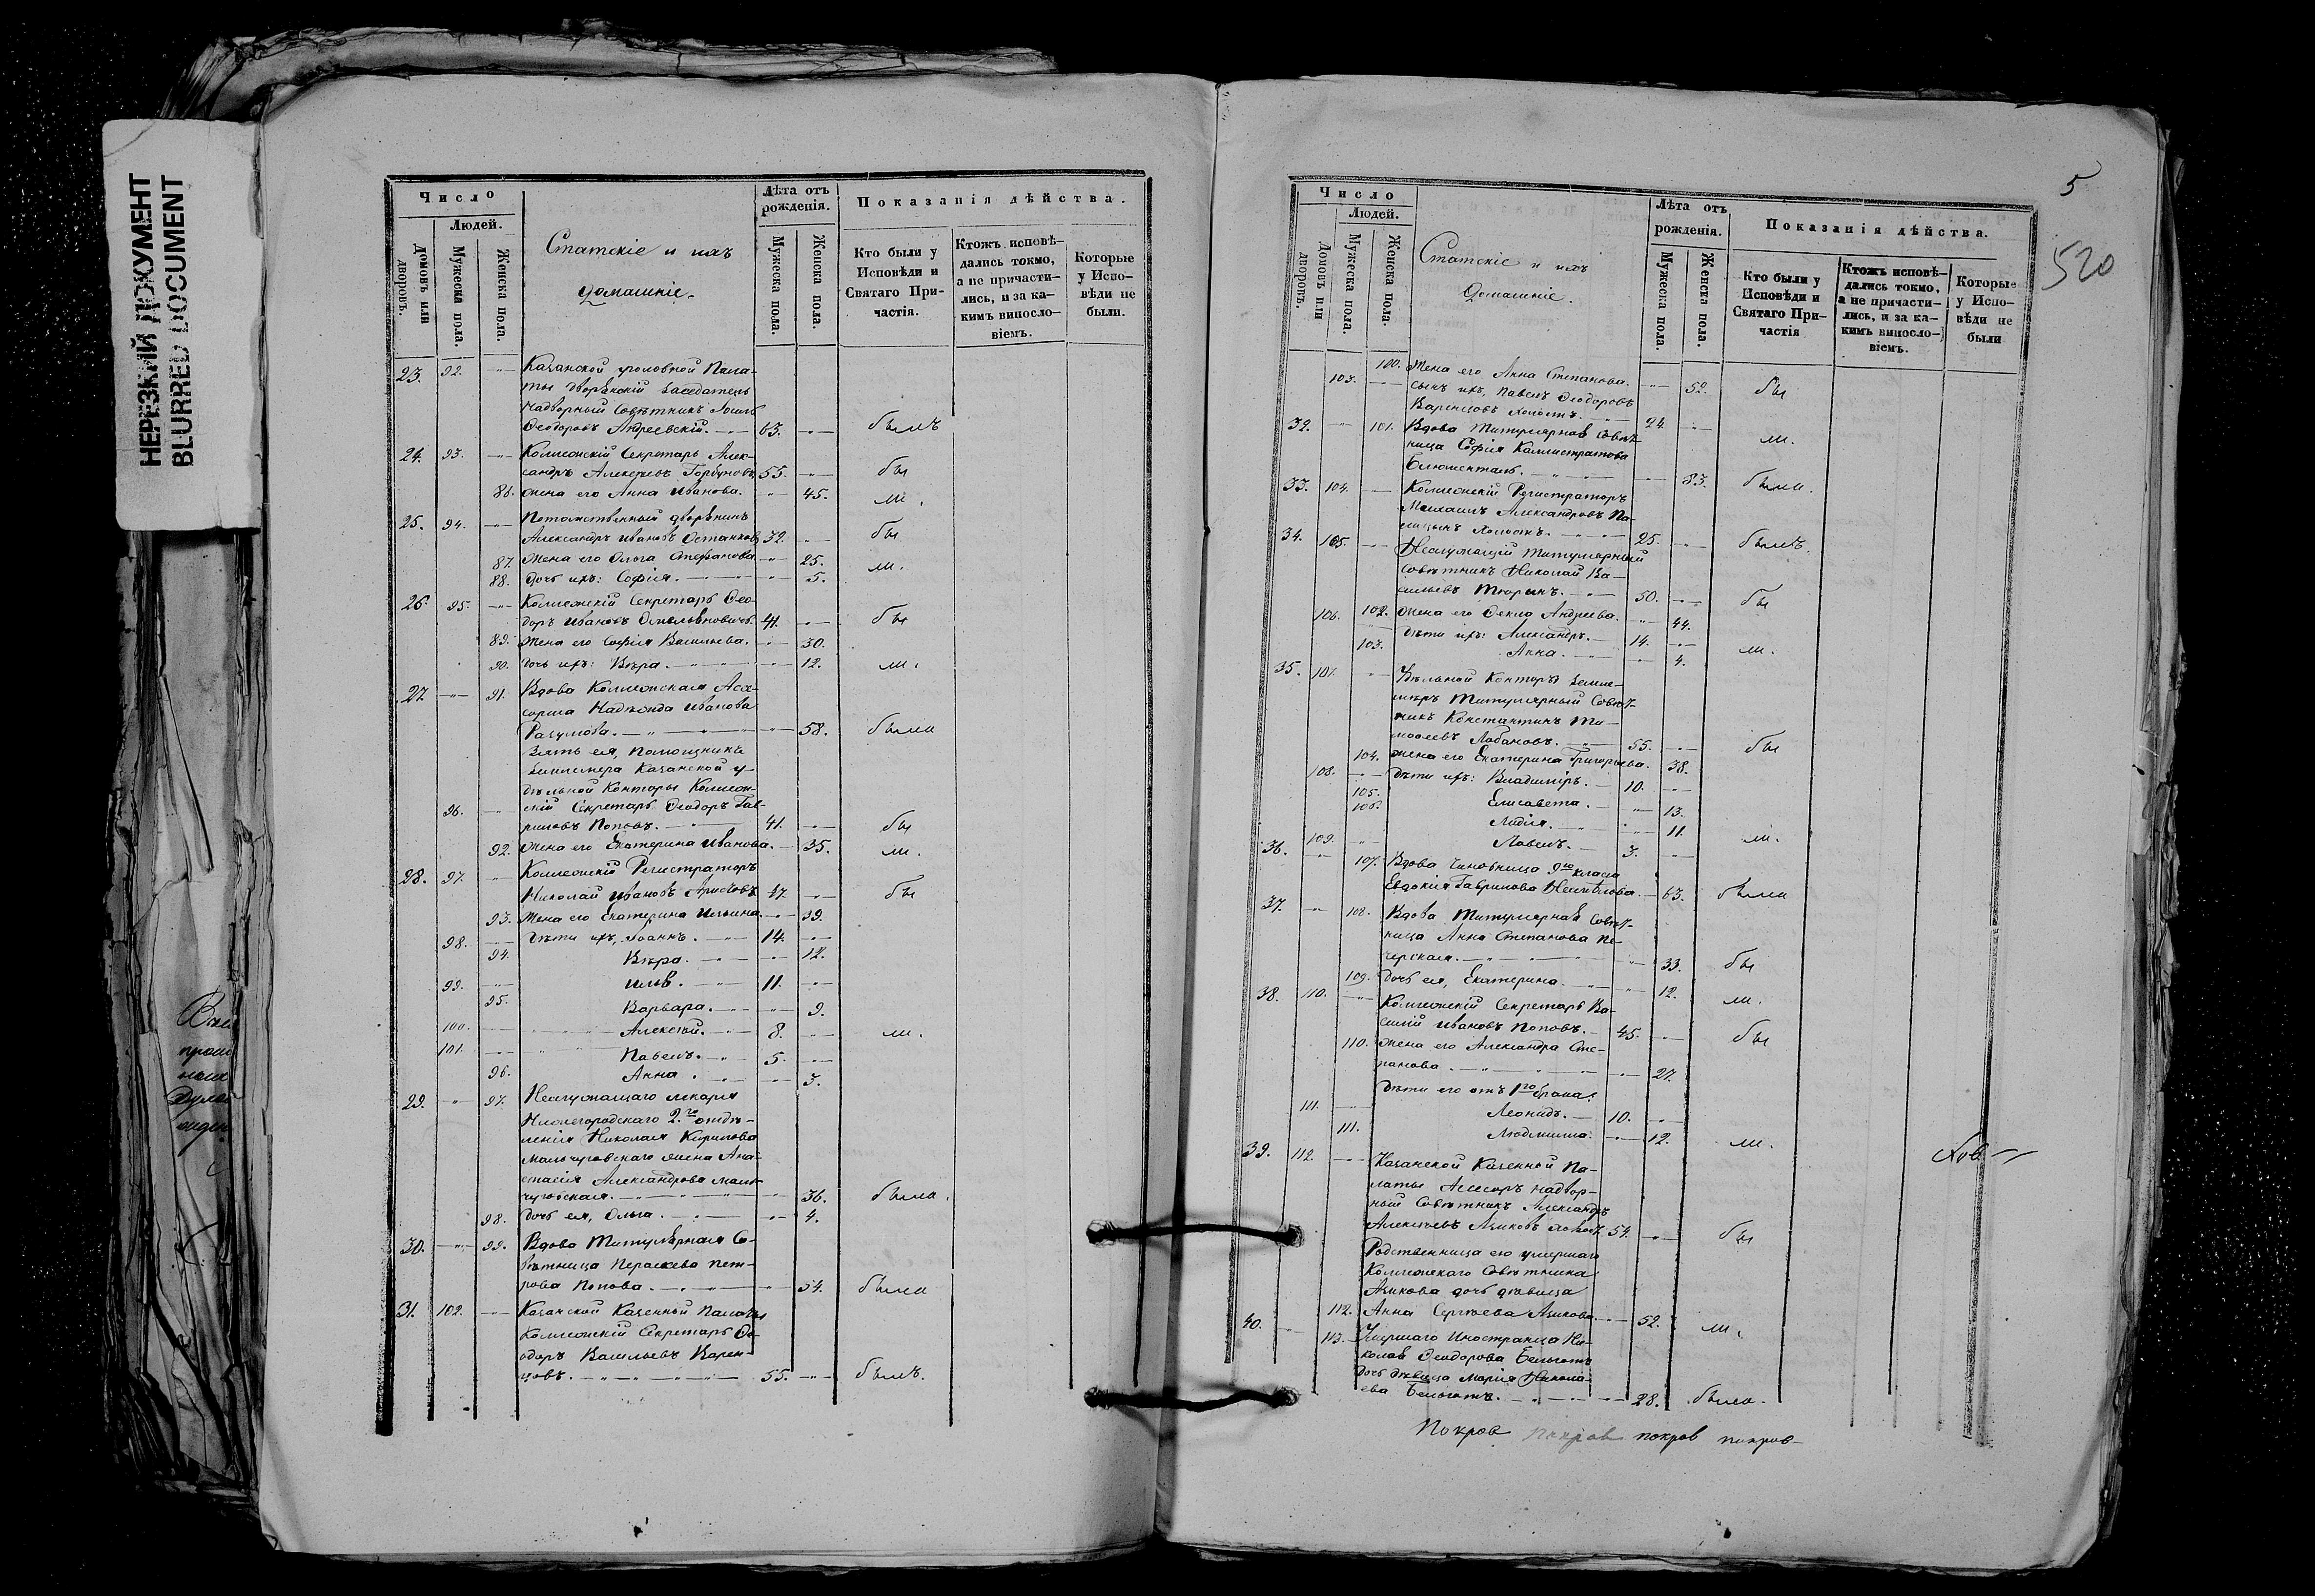 НЕРЕЗКИЙ ДОКУМЕНТ
BLURRED DOCUMENT
Число
Людей.
Домовъ или дворовъ.
Мужеска пола.
Женска пола.
Статскіе и ихъ
домашніе.
Лѣта отъ рожденія.
Мужеска пола.
Женска пола.
Показанія дѣйства.
Кто были у Исповѣди и Святаго При-частія.
Ктожъ исповѣ-дались токмо, а не причасти-лись, и за ка-кимъ винословіемъ.
Которые у Испо-вѣди не были.
23. 92. Казанской уголовной Пала-
ты дворянскій заседатель
Надворный Совѣтникъ Іосифъ
Ѳеодоровъ Андреевскій. 63. былъ
24. 93. Коллежскій Секретарь Алек-
сандръ Алексѣевъ Горбуновъ 55. бы
86. Жена его Анна Иванова. 45. ли.
25. 94. Потомственный дворянинъ
Александръ Ивановъ Останковъ 32. бы
87. Жена его Ольга Стефанова 25. ли.
88. Дочь ихъ: Софія. 5.
26. 95. Коллежскій Секретарь Ѳео-
доръ Ивановъ Омельяновичъ. 41. бы
89. Жена его Софія Васильева. 30.
90. Дочь ихъ: Вѣра. 12. ли.
27. 91. Вдова Коллежская Асес-
сорша Надежда Иванова
Разумова. 58. была
Зять ея, Помощникъ
Землемера Казанской у-
дѣльной Конторы Коллеж-
96. скій Секретарь Ѳеодоръ Гав-
риловъ Поповъ. 41. бы
92. Жена его Екатерина Иванова. 35. ли.
28. 97. Коллежскій Регистраторъ
Николай Ивановъ 47. бы
93. Жена его Екатерина Ильина. 39.
98. Дѣти ихъ, Іоаннъ. 14.
94. Вѣра. 12.
99. Илья. 11.
95. Варвара. 9.
100. Алексѣй. 8. ли.
101. Павелъ. 5.
96. Анна. 3.
29. 97. Неслужащаго лекаря
Нижегородскаго 2го отдѣ-
ленія Николая Кирилова
Мальчуговскаго жена Ана-
стасія Александрова Маль-
чуговская. 36. была.
98. Дочь ея, Ольга. 4.
30. 99. Вдова Титулярная Со-
вѣтница Параскева Пет-
рова Попова. 54. была
31. 102. Казанской Казенной Палаты
Коллежскій Секретарь Ѳе-
одоръ Васильевъ Варен-
цовъ. 55. былъ.
5
520
Число
Людей.
Домовъ или дворовъ.
Мужеска пола.
Женска пола.
Статскіе и ихъ
домашніе.
Лѣта отъ рожденія.
Мужеска пола.
Женска пола.
Показанія дѣйства.
Кто были у Исповѣди и Святаго При-частія
Ктожъ исповѣ-дались токмо, а не причасти-лись, и за ка-кимъ винословіемъ.
Которые у Испо-вѣди не были
100. Жена его Анна Степанова. 52. бы
103. сынъ ихъ, Павелъ Ѳеодоровъ
Варенцовъ холостъ. 24. ли.
32. 101. Вдова Титулярная Совѣт-
ница Софія Каллистратова
Блюменталь. 83. была.
33. 104. Коллежскій Регистраторъ
Михаилъ Александровъ Па-
лицынъ холостъ. 25. былъ.
34. 105. Неслужащій Титулярный
Совѣтникъ Николай Ва-
сильевъ Тюринъ. 50. бы
102. Жена его Ѳекла Андреева. 44.
106. Дѣти ихъ: Александръ. 14.
103. Анна. 4. ли.
35. 107. Удѣльной Конторы Земле-
мѣръ Титулярный Совѣт-
никъ Константинъ Ти-
моѳеевъ Лобановъ. 55. бы
104. Жена его Екатерина Григорьева. 38.
108. Дѣти ихъ: Владиміръ. 10.
105. Елисавета. 13.
106. Лидія. 11.
109. Павелъ. 3. ли.
36. 107. Вдова Чиновница 9го класса
Евдокія Гаврилова Несмѣлова. 63. была
37. 108. Вдова Титулярная Совѣт-
ница Анна Степанова Пе-
черская. 33. бы
109. Дочь ея, Екатерина. 12. ли.
38. 110. Коллежскій Секретарь Ва-
силій Ивановъ Поповъ. 45. бы
110. Жена его Александра Сте-
панова. 27.
Дѣти его отъ 1го брака:
111. Леонидъ. 10.
111. Людмила. 12. ли.
39. 112. Казанской Казенной Па-
латы Ассесоръ Надвор-
ный Совѣтникъ Александръ
Алексѣевъ Азиковъ холостъ 54. бы
Родственница его умершаго
Коллежскаго Совѣтника
Азикова дочь дѣвица
112. Анна Сергѣева Азикова. 52. ли.
40. 113. Умершаго Иностранца Ни-
колая Ѳеодорова
дочь дѣвица Марія Никола-
ева 28. была.
Покров Покров покров покров